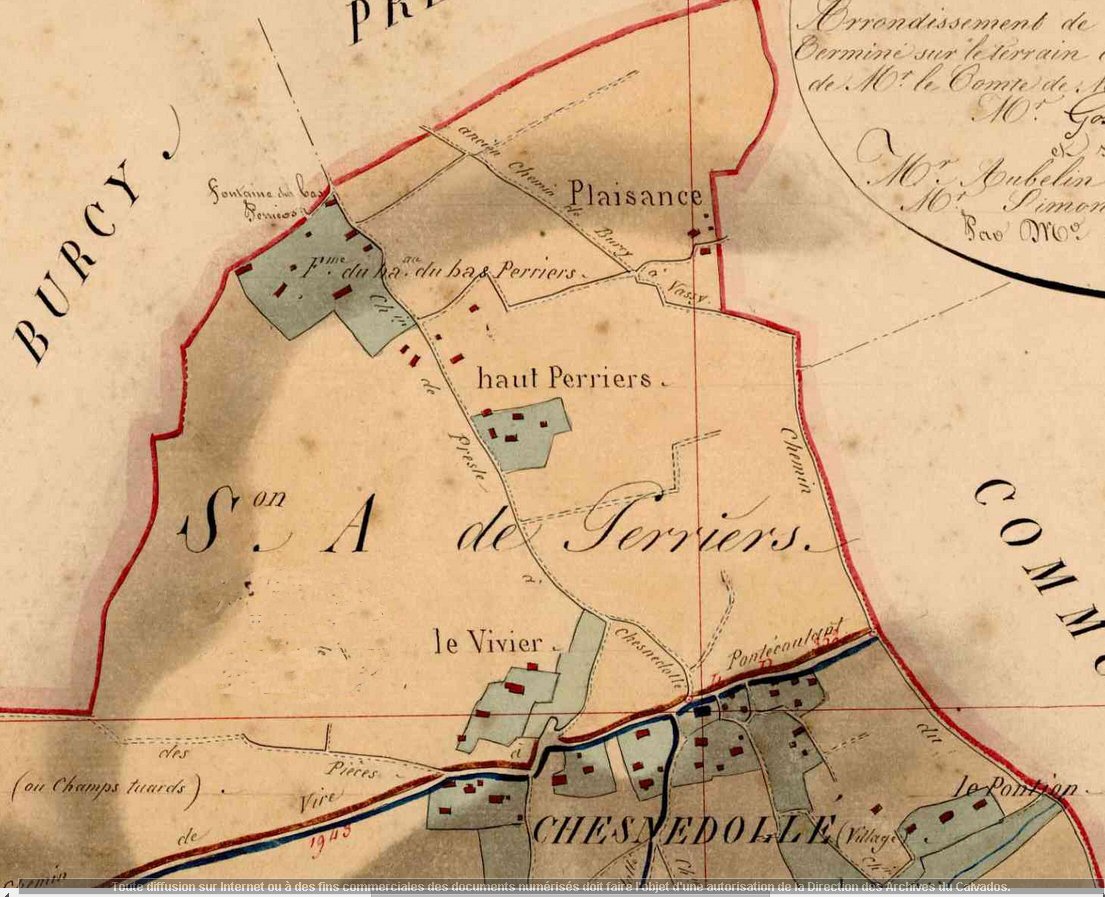 PRE
Arrondissement de
Terminé sur le terrain
de Mr. le Comte de
Mr. Gos
Mr. Aubelin
Mr. Simon
BURCY )
Fontaine du bas
Perriers
ancien Chemin de Burcy à Vassy
Plaisance
Fme. du hau. du bas Perriers.
haut Perriers.
Chin. de Presle à Chesnedollé
Chemin du
COMMU
Son. A de Perriers.
le Vivier.
Pontécoulant
des Pièces
(ou Champs tuards) .
Chemin de Vire à
1943
CHESNEDOLLÉ (Village)
le Pontion.
Ch
Toute diffusion sur Internet ou à des fins commerciales des documents numérisés doit faire l'objet d'une autorisation de la Direction des Archives du Calvados.